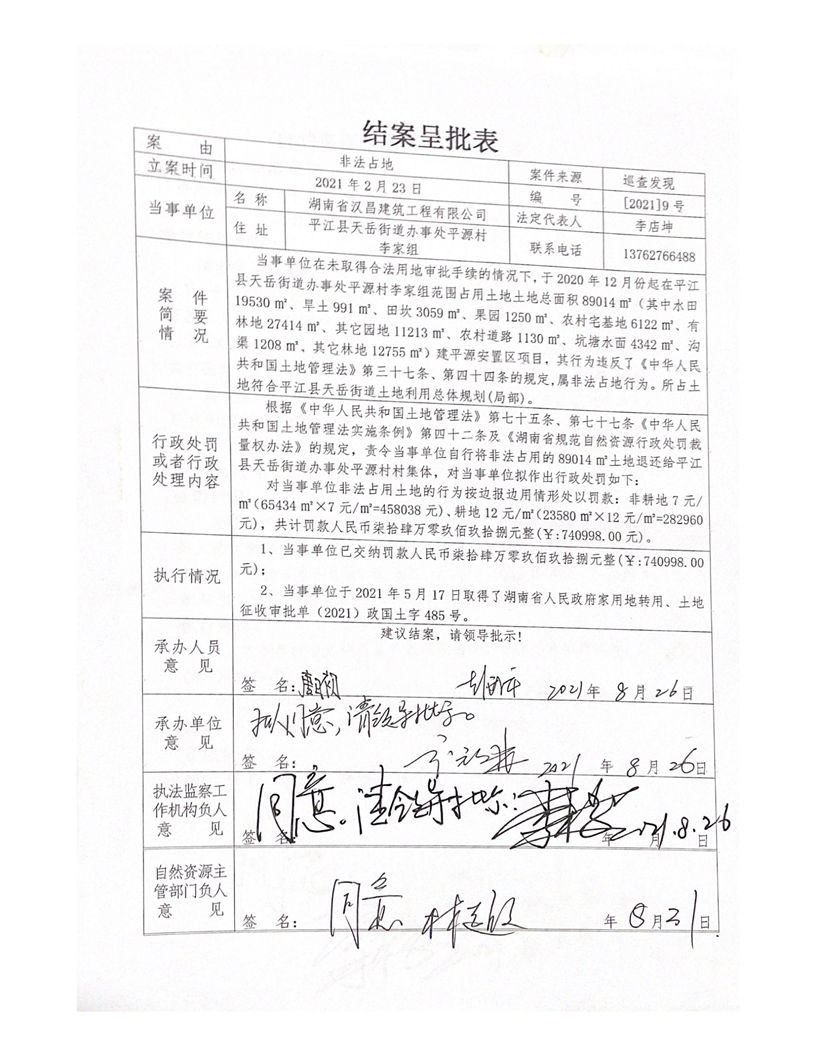 结案呈批表
案 由 非法占地 案件来源 巡查发现
立案时间 2021年2月23日 编 号 [2021]9号
当事单位 名 称 湖南省汉昌建筑工程有限公司 法定代表人 李店坤
住 址 平江县天岳街道办事处平源村 联系电话 13762766488
李家组
案 件
简 要
情 况
当事单位在未取得合法用地审批手续的情况下，于2020年12月份起在平江
县天岳街道办事处平源村李家组范围占用土地土地总面积89014㎡（其中水田
19530㎡、旱土991㎡、田坎3059㎡、果园1250㎡、农村宅基地6122㎡、有
林地27414㎡、其它园地11213㎡、农村道路1130㎡、坑塘水面4342㎡、沟
渠1208㎡、其它林地12755㎡）建平源安置区项目，其行为违反了《中华人民
共和国土地管理法》第三十七条、第四十四条的规定，属非法占地行为。所占土
地符合平江县天岳街道土地利用总体规划(局部)。
行政处罚
或者行政
处理内容
根据《中华人民共和国土地管理法》第七十五条、第七十七条《中华人民
共和国土地管理法实施条例》第四十二条及《湖南省规范自然资源行政处罚裁
量权办法》的规定，责令当事单位自行将非法占用的89014㎡土地退还给平江
县天岳街道办事处平源村村集体，对当事单位拟作出行政处罚如下：
对当事单位非法占用土地的行为按边报边用情形处以罚款：非耕地7元/
㎡(65434㎡×7元/㎡=458038元)、耕地12元/㎡(23580㎡×12元/㎡=282960
元)，共计罚款人民币柒拾肆万零玖佰玖拾捌元整(￥:740998.00元)。
执行情况
1、当事单位已交纳罚款人民币柒拾肆万零玖佰玖拾捌元整(￥:740998.00
元)；
2、当事单位于2021年5月17日取得了湖南省人民政府家用地转用、土地
征收审批单（2021）政国土字485号。
承办人员
意 见
建议结案，请领导批示！
签 名： 2021年8月26日
承办单位
意 见
拟同意，请领导批示。
签 名： 2021年8月26日
执法监察工
作机构负人
意 见
同意。请领导批示！
签 名： 年 月 日 21.8.26
自然资源主
管部门负人
意 见
同意
签 名： 年8月31日